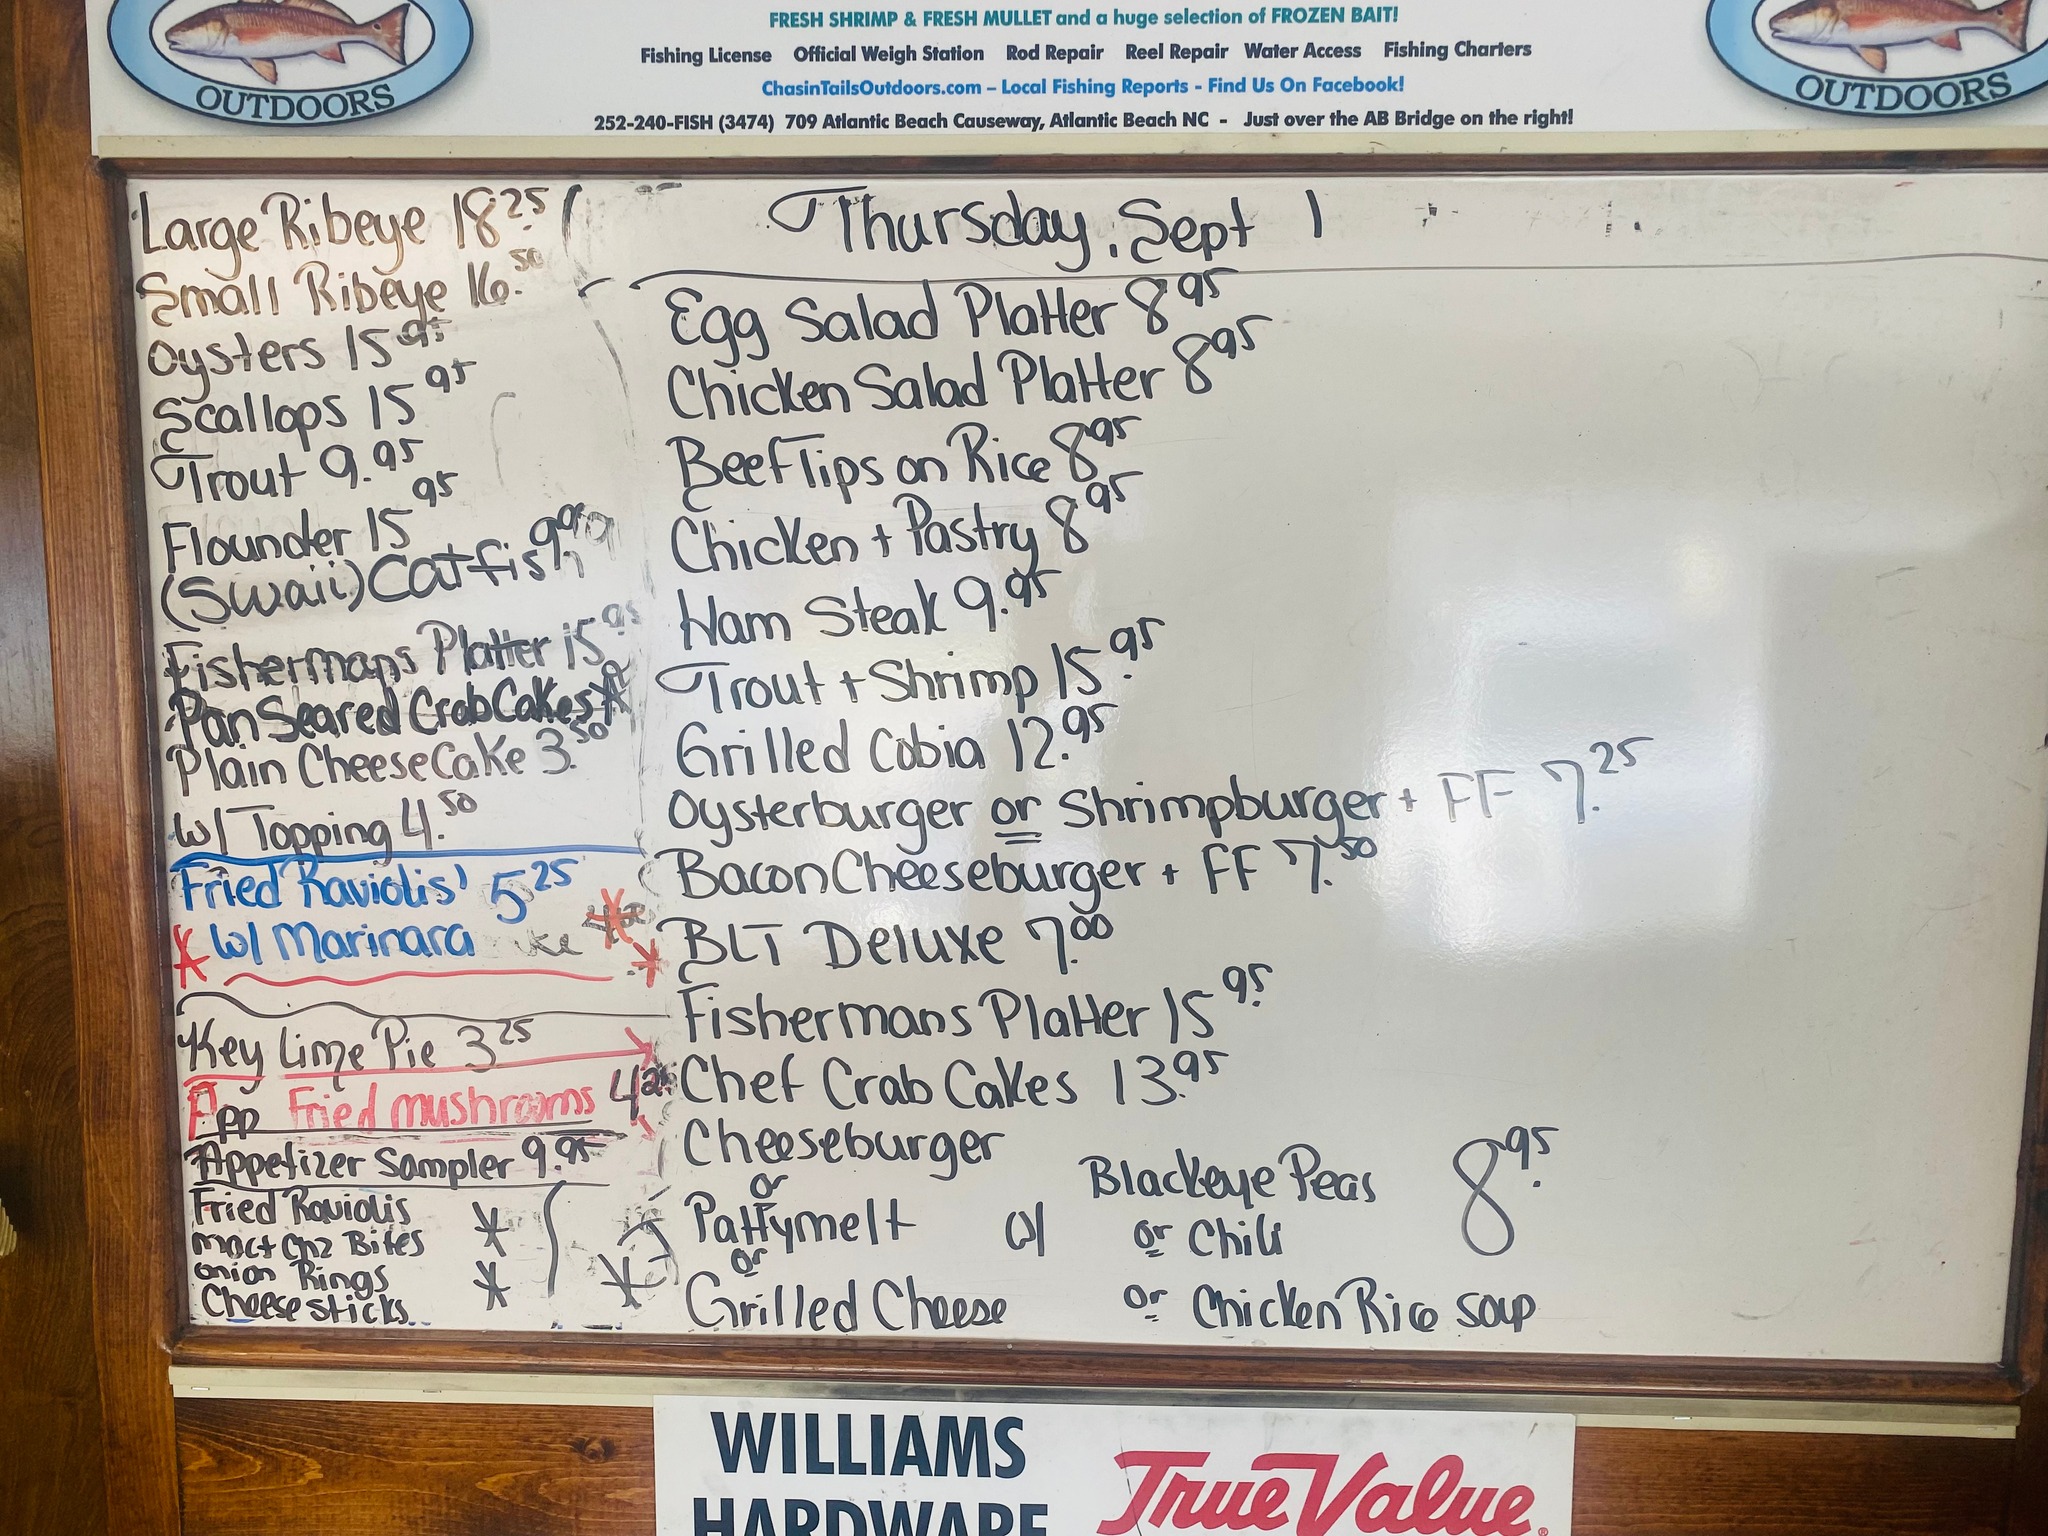 OUTDOORS
FRESH SHRIMP & FRESH MULLET and a huge selection of FROZEN BAIT!
Fishing License Official Weigh Station Rod Repair Reel Repair Water Access Fishing Charters
ChasinTailsOutdoors.com – Local Fishing Reports - Find Us On Facebook!
252-240-FISH (3474) 709 Atlantic Beach Causeway, Atlantic Beach NC - Just over the AB Bridge on the right!
OUTDOORS
Large Ribeye 18.25
Small Ribeye 16.50
Oysters 15.95
Scallops 15 95
Trout 9.95
Flounder 15 95
(Swaii) Catfish 9.99
Fishermans Platter 15 95
Pan Seared Crab Cakes
Plain CheeseCake 3.50
w/ Topping 4.50
Fried Raviolis' 5 25
* w/ Marinara
Key Lime Pie 3 25
App Fried mushrooms 4 25
Appetizer Sampler 9.95
Fried Raviolis
mac+chz Bites
onion Rings
Cheese sticks
Thursday, Sept 1
Egg Salad Platter 8 95
Chicken Salad Platter 8 95
Beef Tips on Rice 8 95
Chicken + Pastry 8 95
Ham Steak 9.95
Trout + Shrimp 15.95
Grilled Cobia 12.95
Oysterburger or Shrimpburger + FF 7.25
Bacon Cheeseburger + FF 7.50
BLT Deluxe 7.00
Fishermans Platter 15.95
Chef Crab Cakes 13.95
Cheeseburger
or
Pattymelt w/ Blackeye Peas 8.95
or
or Chili
Grilled Cheese or Chicken Rice soup
WILLIAMS
HARDWARE
True Value®